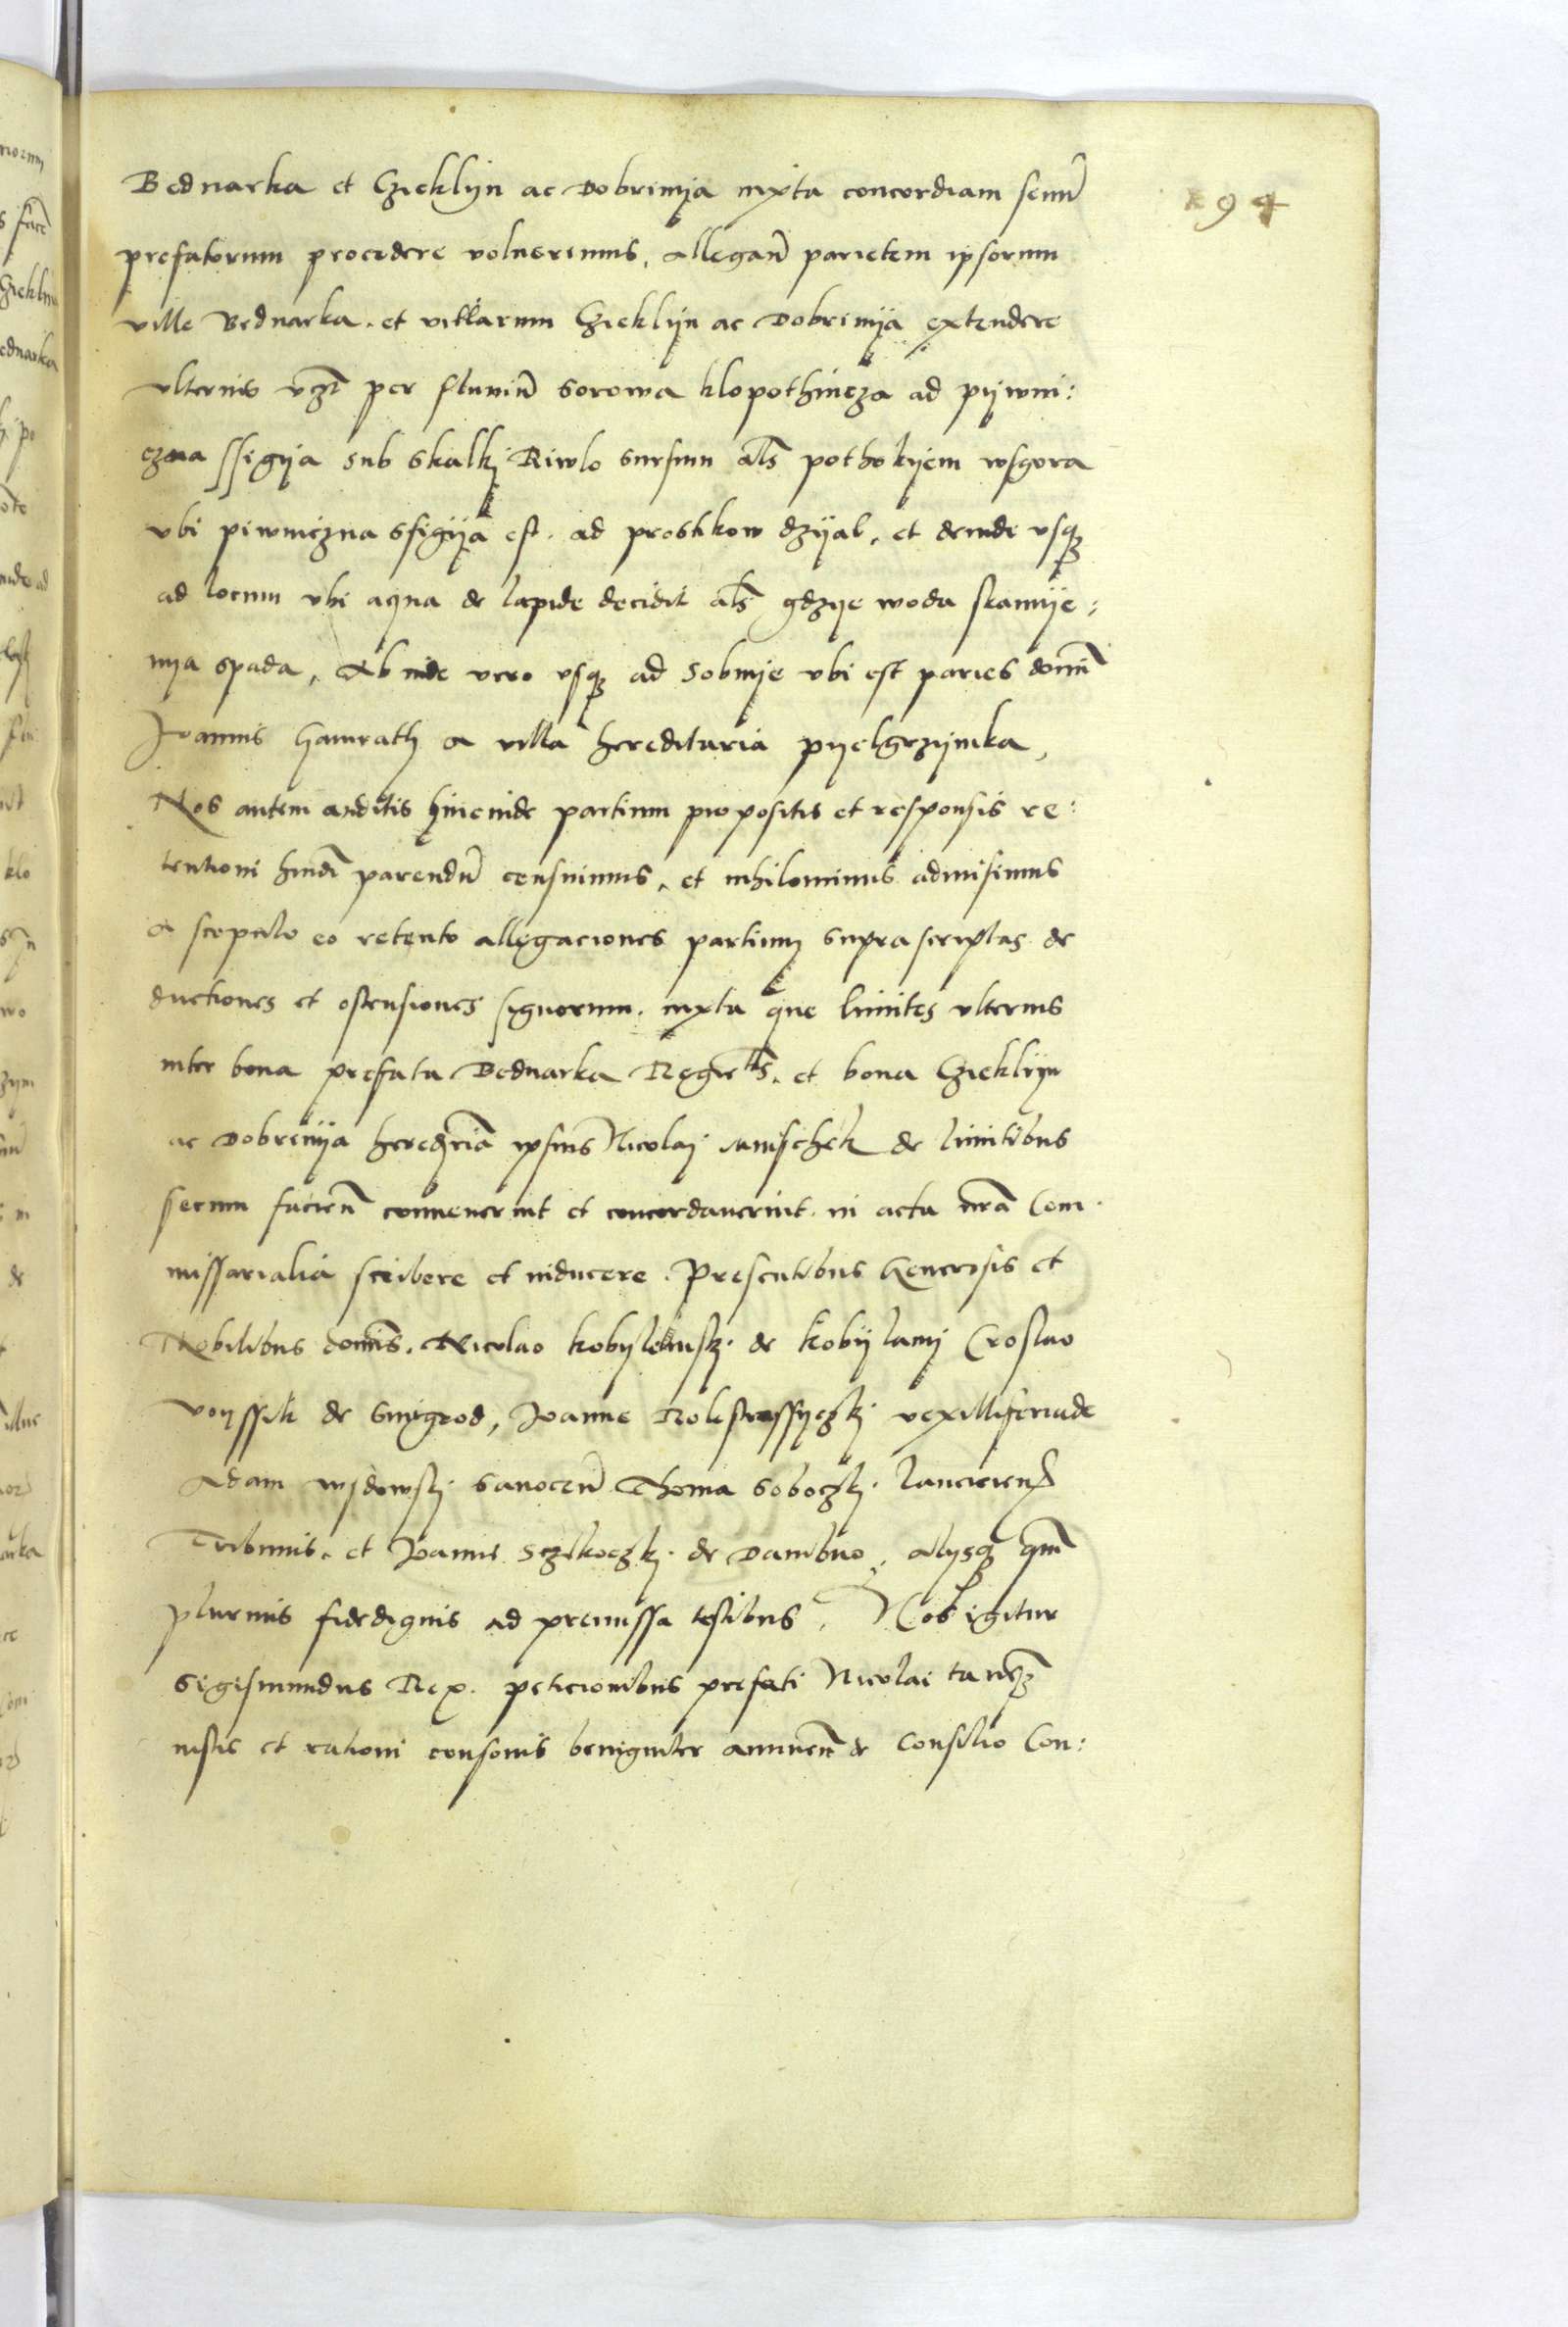 94
Bednarka et Czieklijn ac Dobrinija iuxta concordiam senum̃
prefatorum procedere voluerimus, allegañ parietem ipsorum
ville Bednarka. et villarum Czieklijn ac Dobrinija extendere
vlterius vꝫt per fluuiũ Sorowa klopothnicza ad pijwni:
czna ssigija sub Skalkj Riwlo sursum als̃ pothokijem wsgora
vbi piwniczna ssigija est. ad proskkow dzijal, et deinde vsqꝫ
ad locum vbi aqua de lapide decidit als̃ gdzije woda skamije:
nija spada, Ab inde vero vsqꝫ ad Sobnije vbi est paries domiñ
Joannis Hamrath a villa hereditaria pijelgrzijmka,
Nos autem auditis hincinde partium propositis et responsis re:
tentioni hmõi parendũ censuimus, et nihilominus admisimus
a scopulo eo retento allegaciones partium suprascriptas de
ductiones et ostensiones signorum. iuxta que limites vlterius
inter bona prefata Bednarka Regietls. et bona Czieklijn
ac Dobrinija heredr̃ia ipsius Nicolaj Mnischek de limitibus
secum facieñ conuenerint et concordauerint. in acta nr̃a Com.
missarialia scribere et inducere. Presentibus Generosis et
Nobilibus domĩs. Nicolao kobijlenskj. de kobijlanij Croslao
voijssik de Smigrod, Joanne Rokstrossijczkj vexillifero de
Adam wzdowskj. Sanoceñ Thoma Soboczkj. lancicieñ
Tribunis. et Joannis Sczekoczkj. de Dambno, alijsqꝫ qm̃
plurimis fidedignis ad premissa testibus, Nos igitur
Sigismundus Rex. peticionibus prefati Nicolai tanqꝫ
iustis et rationi consonis benigniter annueñ de consilio Con: